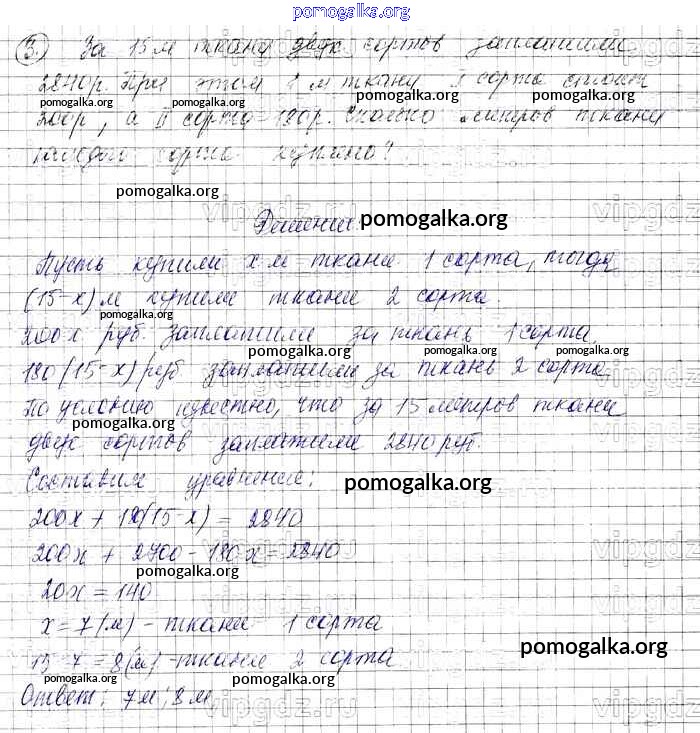 pomogalka.org
3. За 15 м ткани двух сортов заплатили
2840р. При этом 1 м ткани I сорта стоит
pomogalka.org pomogalka.org pomogalka.org
200р, а II сорта 180р. Сколько метров ткани
каждого сорта куплено?
pomogalka.org
vipgdz.ru
Решение pomogalka.org
Пусть купили х м ткани 1 сорта, тогда
(15-х) м купили ткани 2 сорта.
pomogalka.org
200х руб. заплатили за ткань 1 сорта
pomogalka.org pomogalka.org pomogalka.org
180(15-х) руб заплатили за ткань 2 сорта
По условию известно, что за 15 метров ткани
pomogalka.org
двух сортов заплатили 2840 руб.
Составим уравнение:
pomogalka.org
200х + 180(15-х) = 2840
200х + 2700 - 180х = 2840
pomogalka.org
20х = 140
х = 7 (м) - ткани 1 сорта
pomogalka.org
15-7 = 8(м) - ткани 2 сорта
pomogalka.org pomogalka.org
Ответ: 7м; 8м
vipgdz.ru